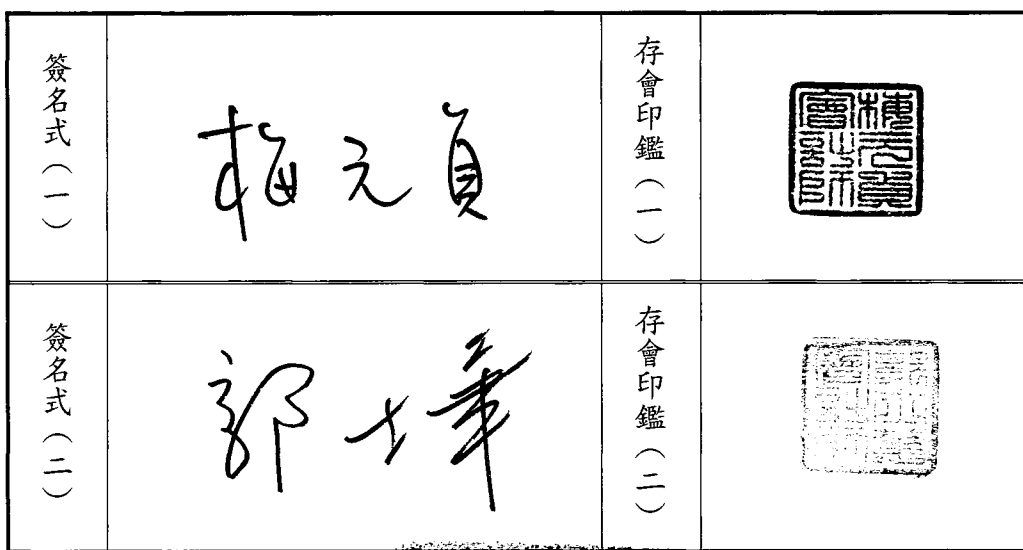 簽名式（一）
梅元貞
存會印鑑（一）
梅元貞會計師
簽名式（二）
郭士華
存會印鑑（二）